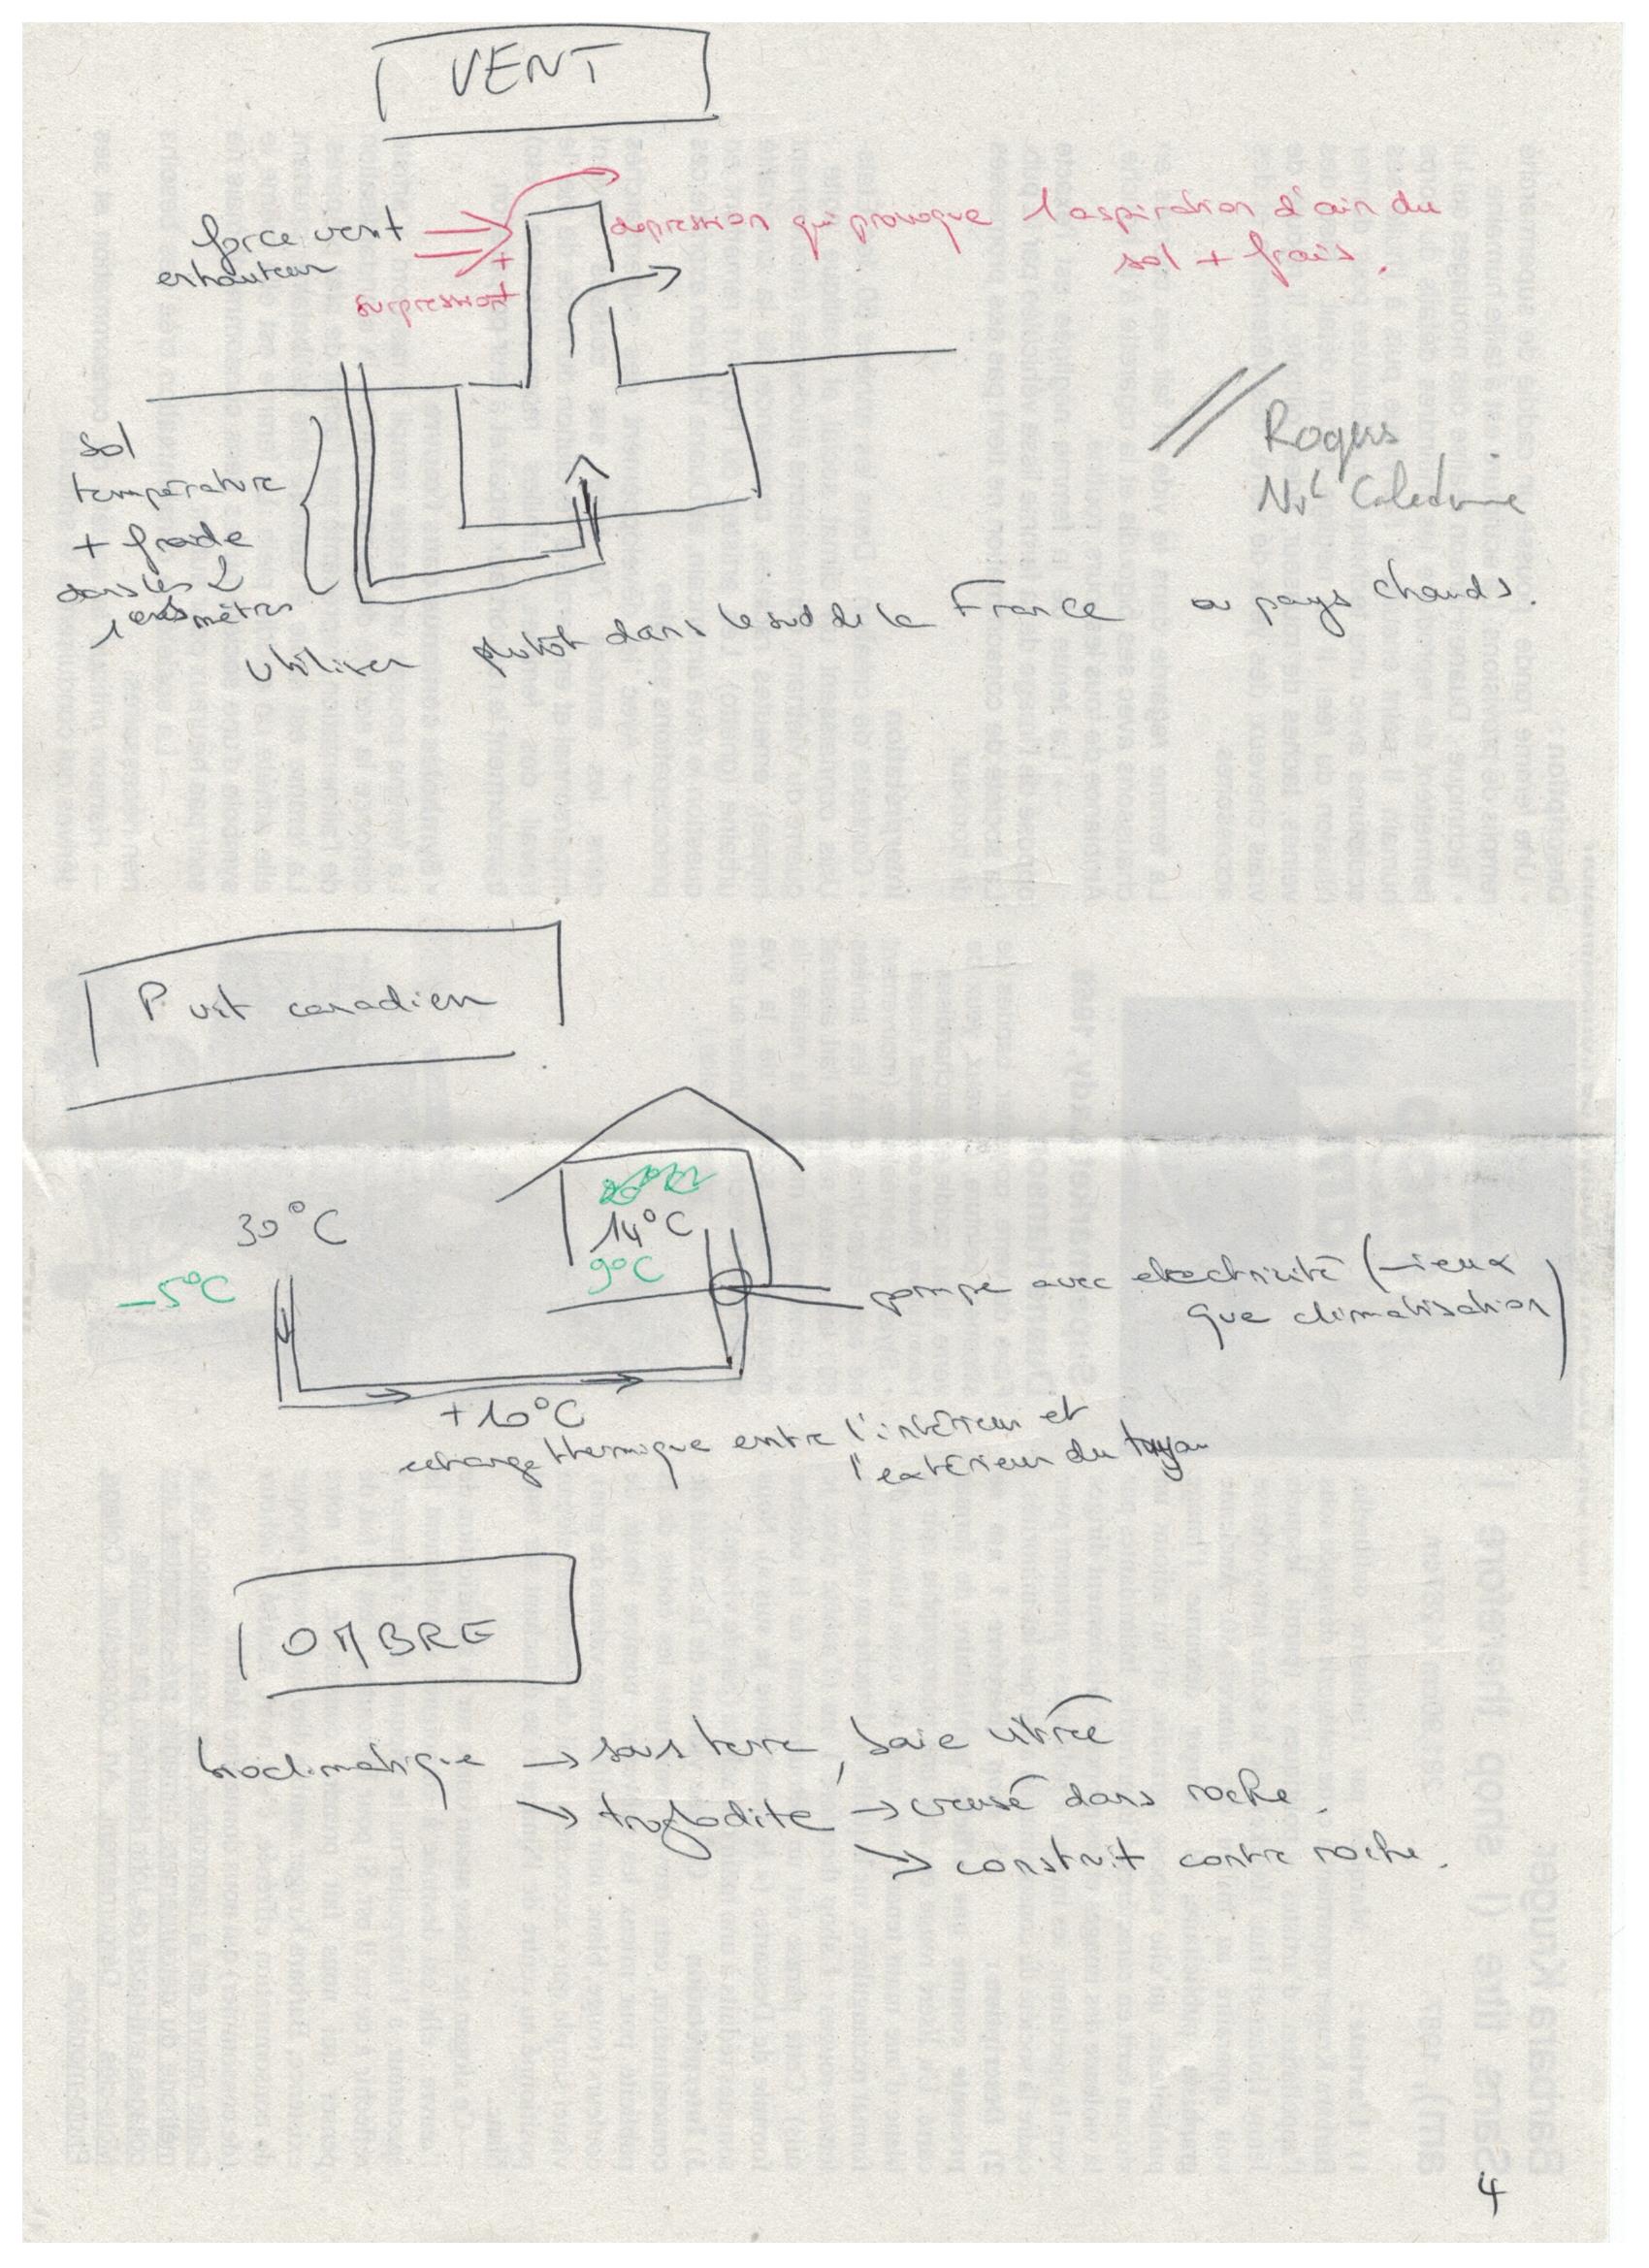 VENT
force vent
en hauteur
+
surpression
+
dépression qui provoque l'aspiration d'air du
sol + frais.
// Rogers
Nvl Calédonie
sol
température
+ froide
dans les 2
1ers mètres
utiliser plutôt dans le sud de la France ou pays chauds.
Puit canadien
30°C
-5°C
14°C
9°C
pompe avec electricité (mieux
que climatisation)
+10°C
echange thermique entre l'intérieur et
l'extérieur du tuyau
OMBRE
bioclimatique → sous terre, baie vitrée
→ troglodite → creusé dans roche.
→ construit contre roche.
4